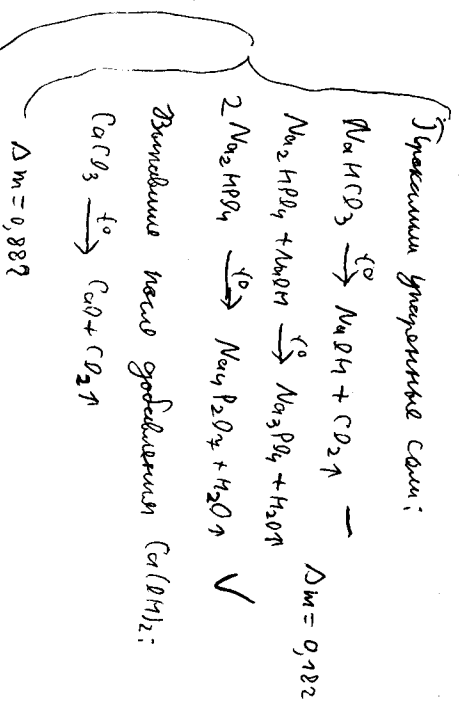 Прокалили упаренные соли:
NaHCO3 →t° NaOH + CO2↑ —
Na2HPO4 + NaOH →t° Na3PO4 + H2O↑
2 Na2HPO4 →t° Na4P2O7 + H2O↑ ✓
Δm = 0,18г
после добавления Ca(OH)2:
CaCO3 →t° CaO + CO2↑
Δm = 0,88г